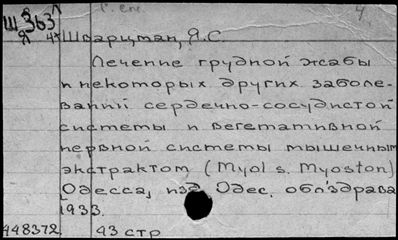 Ш363
Я 44
Шварцман, Я.С.
Лечение грудной жабы
и некоторых других заболе-
ваний сердечно-сосудистой
системы и вегетативной
нервной системы мышечным
экстрактом (Myol s. Myoston)
[Одесса, изд. Одес. облздрава
1933.
448372. 93 стр